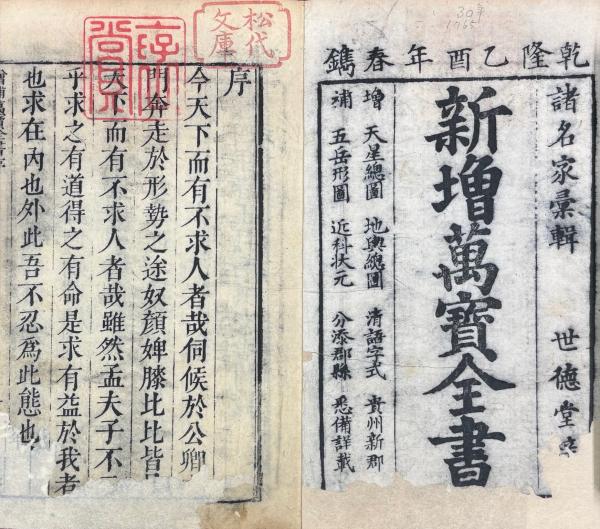 乾隆乙酉年春鐫
諸名家彙輯 世德堂
新增萬寶全書
增 天星總圖 地輿總圖 清語字式 貴州新郡
補 五岳形圖 近科狀元 分添郡縣 悉備詳載
30年
1765
松代
文庫
序
今天下而有不求人者哉伺候於公卿
門奔走於形勢之途奴顏婢膝比比皆
天下而有不求人者哉雖然孟夫子不
乎求之有道得之有命是求有益於我者
也求在內也外此吾不忍爲此態也